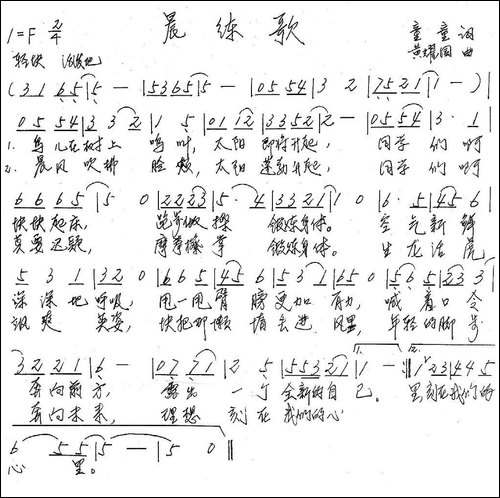 晨练歌
1=F 2/4
童童 词
轻快 活泼地
黄耀国 曲
(3 1 6 5|5 - |5 3 6 5|5 - |0 5 5 4|3 2 |7 5 2 1|1 - )|
0 5 5 4|3 3 2|1 5|0 1 1 2|3 3 5 2|2 - |0 5 5 4|3 · 1|
1. 鸟儿在树上 鸣叫, 太阳 即将升起, 同学 们 啊
2. 晨风 吹拂 脸颊, 太阳 冉冉升起, 同学 们 啊
6 6 6 5|5 0|2 2 2 3|5 · 4|3 3 2 1|1 0|6 · 5|4 5 6|
快快起床, 跑步做 操 锻炼身体。 空气新 鲜
莫要迟疑, 摩拳擦 掌 锻炼身体。 生龙活 虎
5 3 1|3 2 0|6 6 5|4 5 6|5 3 1|6 5 0|5 6 5|2 3 3|
深深地 呼吸, 甩一甩臂 膀更加 有力, 喊着口 令
飒爽 英姿, 快把那懒 惰丢进 风里, 年轻的脚 步
3 2 2 1|6 - |0 7 7 1|2 5|5 5 3 2 1|1 - :‖1 2 3|4 4 5
奔向前方, 露出 一个 全新的自 己。 里刻在我们的
奔向未来, 理想 刻在 我们的心
6 5 5|5 - |5 0‖
心 里。